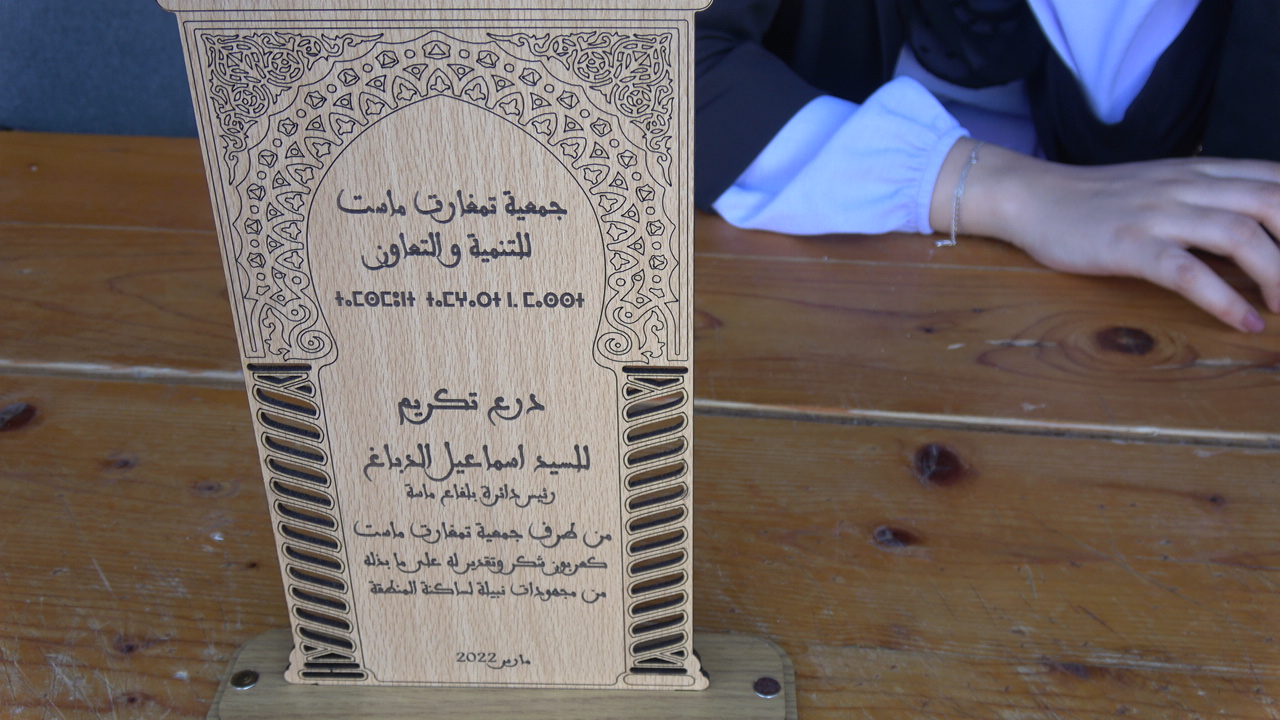 جمعية تمغارت ماست
للتنمية والتعاون
ⵜⴰⵎⵙⵎⵓⵏⵜ ⵜⴰⵎⵖⴰⵔⵜ ⵏ ⵎⴰⵙⵙⵜ
درع تكريم
للسيد اسماعيل الدباغ
رئيس دائرة بلفاع ماسة
من طرف جمعية تمغارت ماست
كعربون شكر وتقدير له على ما بذله
من مجهودات نبيلة لساكنة المنطقة
مارس 2022